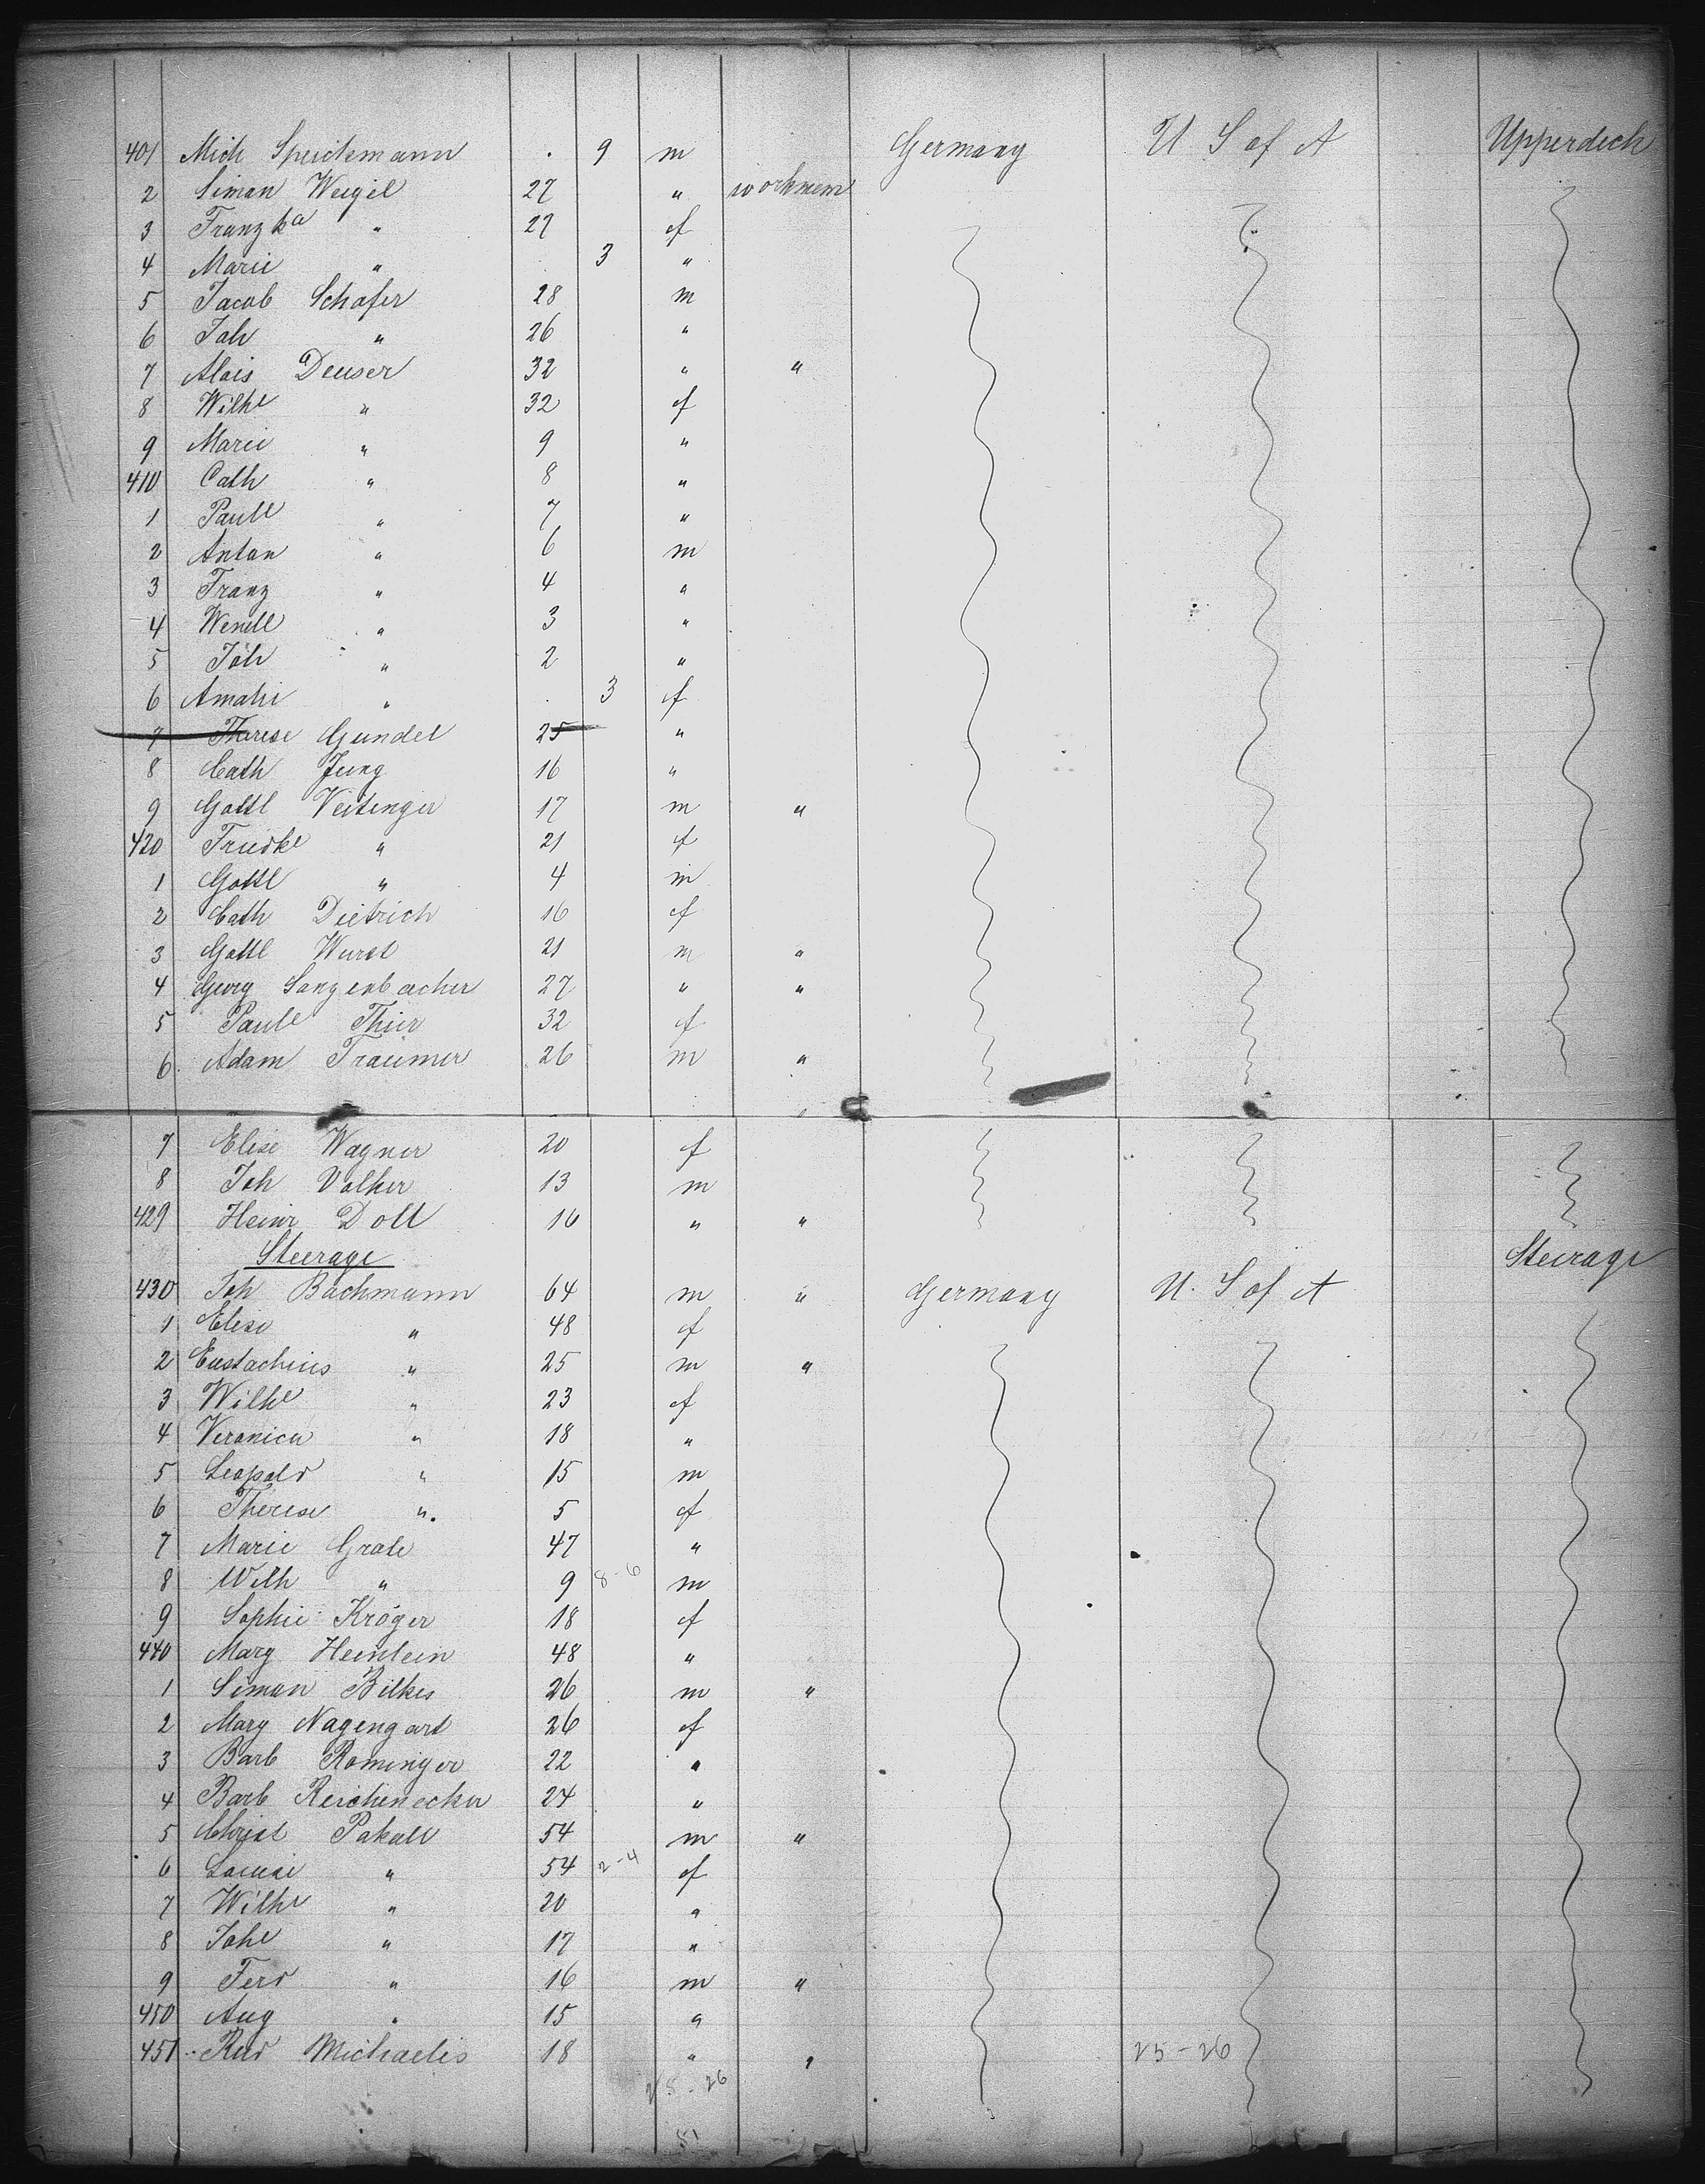 401 Mich Speickmann . 9 m Germany U S of A Upperdeck
2 Simon Weigel 27 " workmem
3 Franzka " 27 f
4 Marie " . 3 "
5 Jacob Schafer 28 m
6 Joh " 26 "
7 Alois Deuser 32 " "
8 Wilhe " 32 f
9 Marie " 9 "
410 Cath " 8 "
1 Paule " 7 "
2 Anton " 6 m
3 Franz " 4 "
4 Wendl " 3 "
5 Joh " 2 "
6 Amalie " . 3 f
7 Therese Gundel 25 "
8 Cath Jung 16 "
9 Gottl Veitenger 17 m "
420 Friedke " 21 f
1 Gottl " 4 m
2 Cath Dietrich 16 f
3 Gottl Wurst 21 m "
4 Georg Sangenbacher 27 " "
5 Paule Thier 32 f
6 Adam Traumer 26 m "
7 Elise Wagner 20 f
8 Joh Volker 13 m
429 Heinr Doll 16 " "
Steerage Steerage
430 Joh Bachmann 64 m " Germany U. S of A
1 Elise " 48 f
2 Eustachius " 25 m "
3 Wilhe " 23 f
4 Veronica " 18 "
5 Leopold " 15 m
6 Therese " 5 f
7 Marie Grale 47 "
8 Wilh " 9 8-6 m
9 Sophie Kröger 18 f
440 Marg Heinlein 48 "
1 Simon Bilkes 26 m "
2 Marg Nagengart 26 f
3 Barb Rominger 22 "
4 Barb Reichenecker 24 "
5 Christ Pakall 54 m "
6 Louise " 54 2-4 f
7 Wilhe " 20 "
8 Johe " 17 "
9 Ferd " 16 m "
450 Aug " 15 "
451 Rud Michaelis 18 " " 25-26
25-26
51